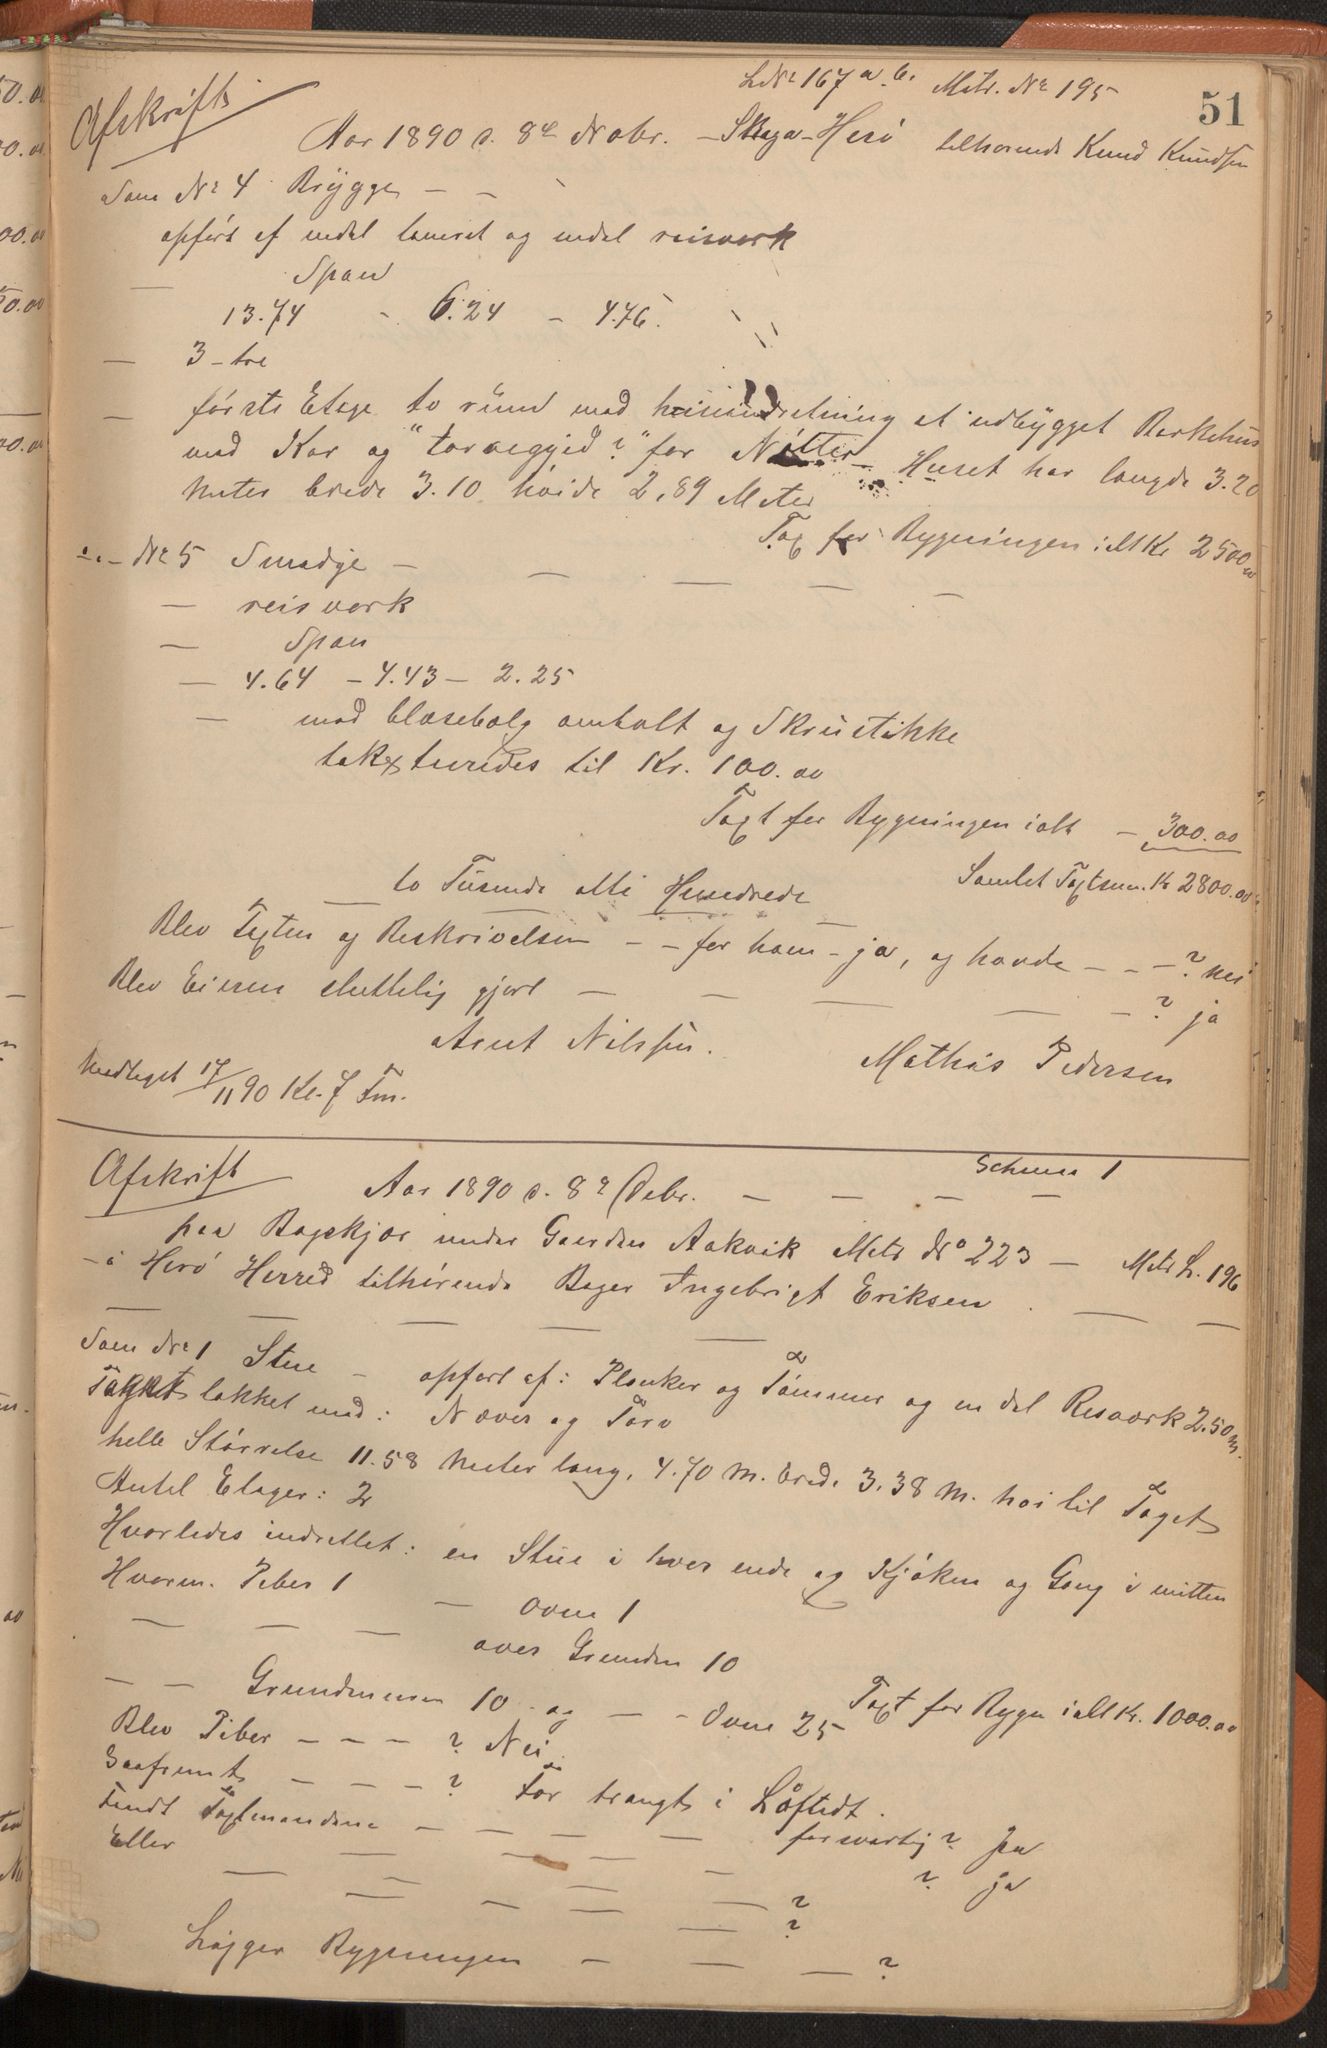 51
LNr 167 a.b. Matr. Nr 195
Afskrift
Aar 1890 d. 8de Nobr. – Skaga – Herø tilhørende Knud Knudsen
Som Nr 4 Brygge – –
opført af endel tømret og endel reisverk
– Span
13.74 – 6.24 – 4.76.
– 3 – tre
– første Etage to rum med indretning et udbygget Barkehus
med Kar og "?" for Nøtter – Huset har længde 3.20
meter brede 3.10 høide 2,89 Meter
Tax for Bygningen ialt Kr 2500.00
–"– Nr 5 Smedje – – – – –
– reisverk
– Span
– 4.64 – 4.43 – 2.25
– med blæsebælg ambolt og Skrustikke
takxteredes til Kr. 100.00
Taxt for Bygningen ialt – 300.00
Samlet Taxtsum. Kr 2800.00
to Tusinde otte Hundrede
Blev Taxten og Beskrivelsen – – for ham – ja, og havde – – – ? nei
Blev Eieren skuttelig gjort – – – – – ? ja
Arnt Nilssen. Mathias Pedersen
Modtaget 17/11 90 Kl. 7 Fm.
Afskrift
Schema 1
Aar 1890 d. 8de Debr. – – – –
paa Bagskjær under Gaarden Aakvik Matr No 223 – Matr L. 196
– i Herø Herred tilhørende Bager Ingebrigt Eriksen . – –
– – – – –
Som Nr 1 Stue – opført af: Planker og Tømmer og en del Resværk 2.50 m.
Taget tækket med: Næver og Torv
helle Størrelse 11.58 Meter lang, 4.70 m. bred. 3.38 m. høi til Taget
Antal Etager: 2
Hvorledes indrettet: en Stue i hver ende og Kjøken og Gang i mitten
Hvorm. Piber 1 – Ovne 1
– – – over Grunden 10
– – Grundmuren 10 og – – Ovne 25
Taxt for Bygn ialt Kr. 1000.00
Blev Piber – – – ? Nei
Saafremt – – – ? For trangt i Løftedt.
Fandt Taxtmændene – – – – forsvarlig ? Ja
Eller – – – – ? ja
– – – – ?
– – – – ?
Ligger Bygningen – – – ?